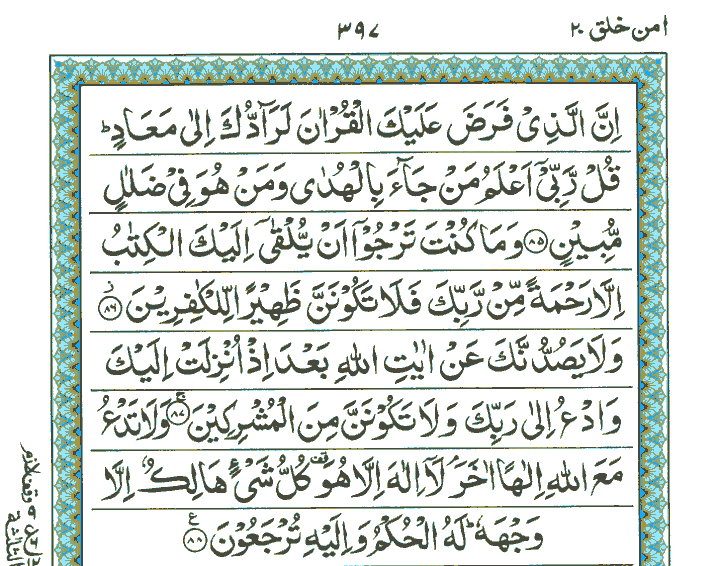 امن خلق ٢٠
٣٩٧
اِنَّ الَّذِىْ فَرَضَ عَلَيْكَ الْقُرْاٰنَ لَرَآدُّكَ اِلٰى مَعَادٍ ؕ
قُلْ رَّبِّىْٓ اَعْلَمُ مَنْ جَآءَ بِالْهُدٰى وَمَنْ هُوَ فِىْ ضَلٰلٍ
مُّبِيْنٍ ﴿۸۵﴾ وَمَا كُنْتَ تَرْجُوْٓا اَنْ يُّلْقٰٓى اِلَيْكَ الْكِتٰبُ
اِلَّا رَحْمَةً مِّنْ رَّبِّكَ فَلَا تَكُوْنَنَّ ظَهِيْرًا لِّلْكٰفِرِيْنَ ﴿۸۶﴾
وَلَا يَصُدُّنَّكَ عَنْ اٰيٰتِ اللّٰهِ بَعْدَ اِذْ اُنْزِلَتْ اِلَيْكَ
وَادْعُ اِلٰى رَبِّكَ وَلَا تَكُوْنَنَّ مِنَ الْمُشْرِكِيْنَ ﴿۸۷﴾ وَلَا تَدْعُ
مَعَ اللّٰهِ اِلٰهًا اٰخَرَ ۘ لَآ اِلٰهَ اِلَّا هُوَ ۟ كُلُّ شَىْءٍ هَالِكٌ اِلَّا
وَجْهَهٗ ؕ لَهُ الْحُكْمُ وَاِلَيْهِ تُرْجَعُوْنَ ﴿۸۸﴾